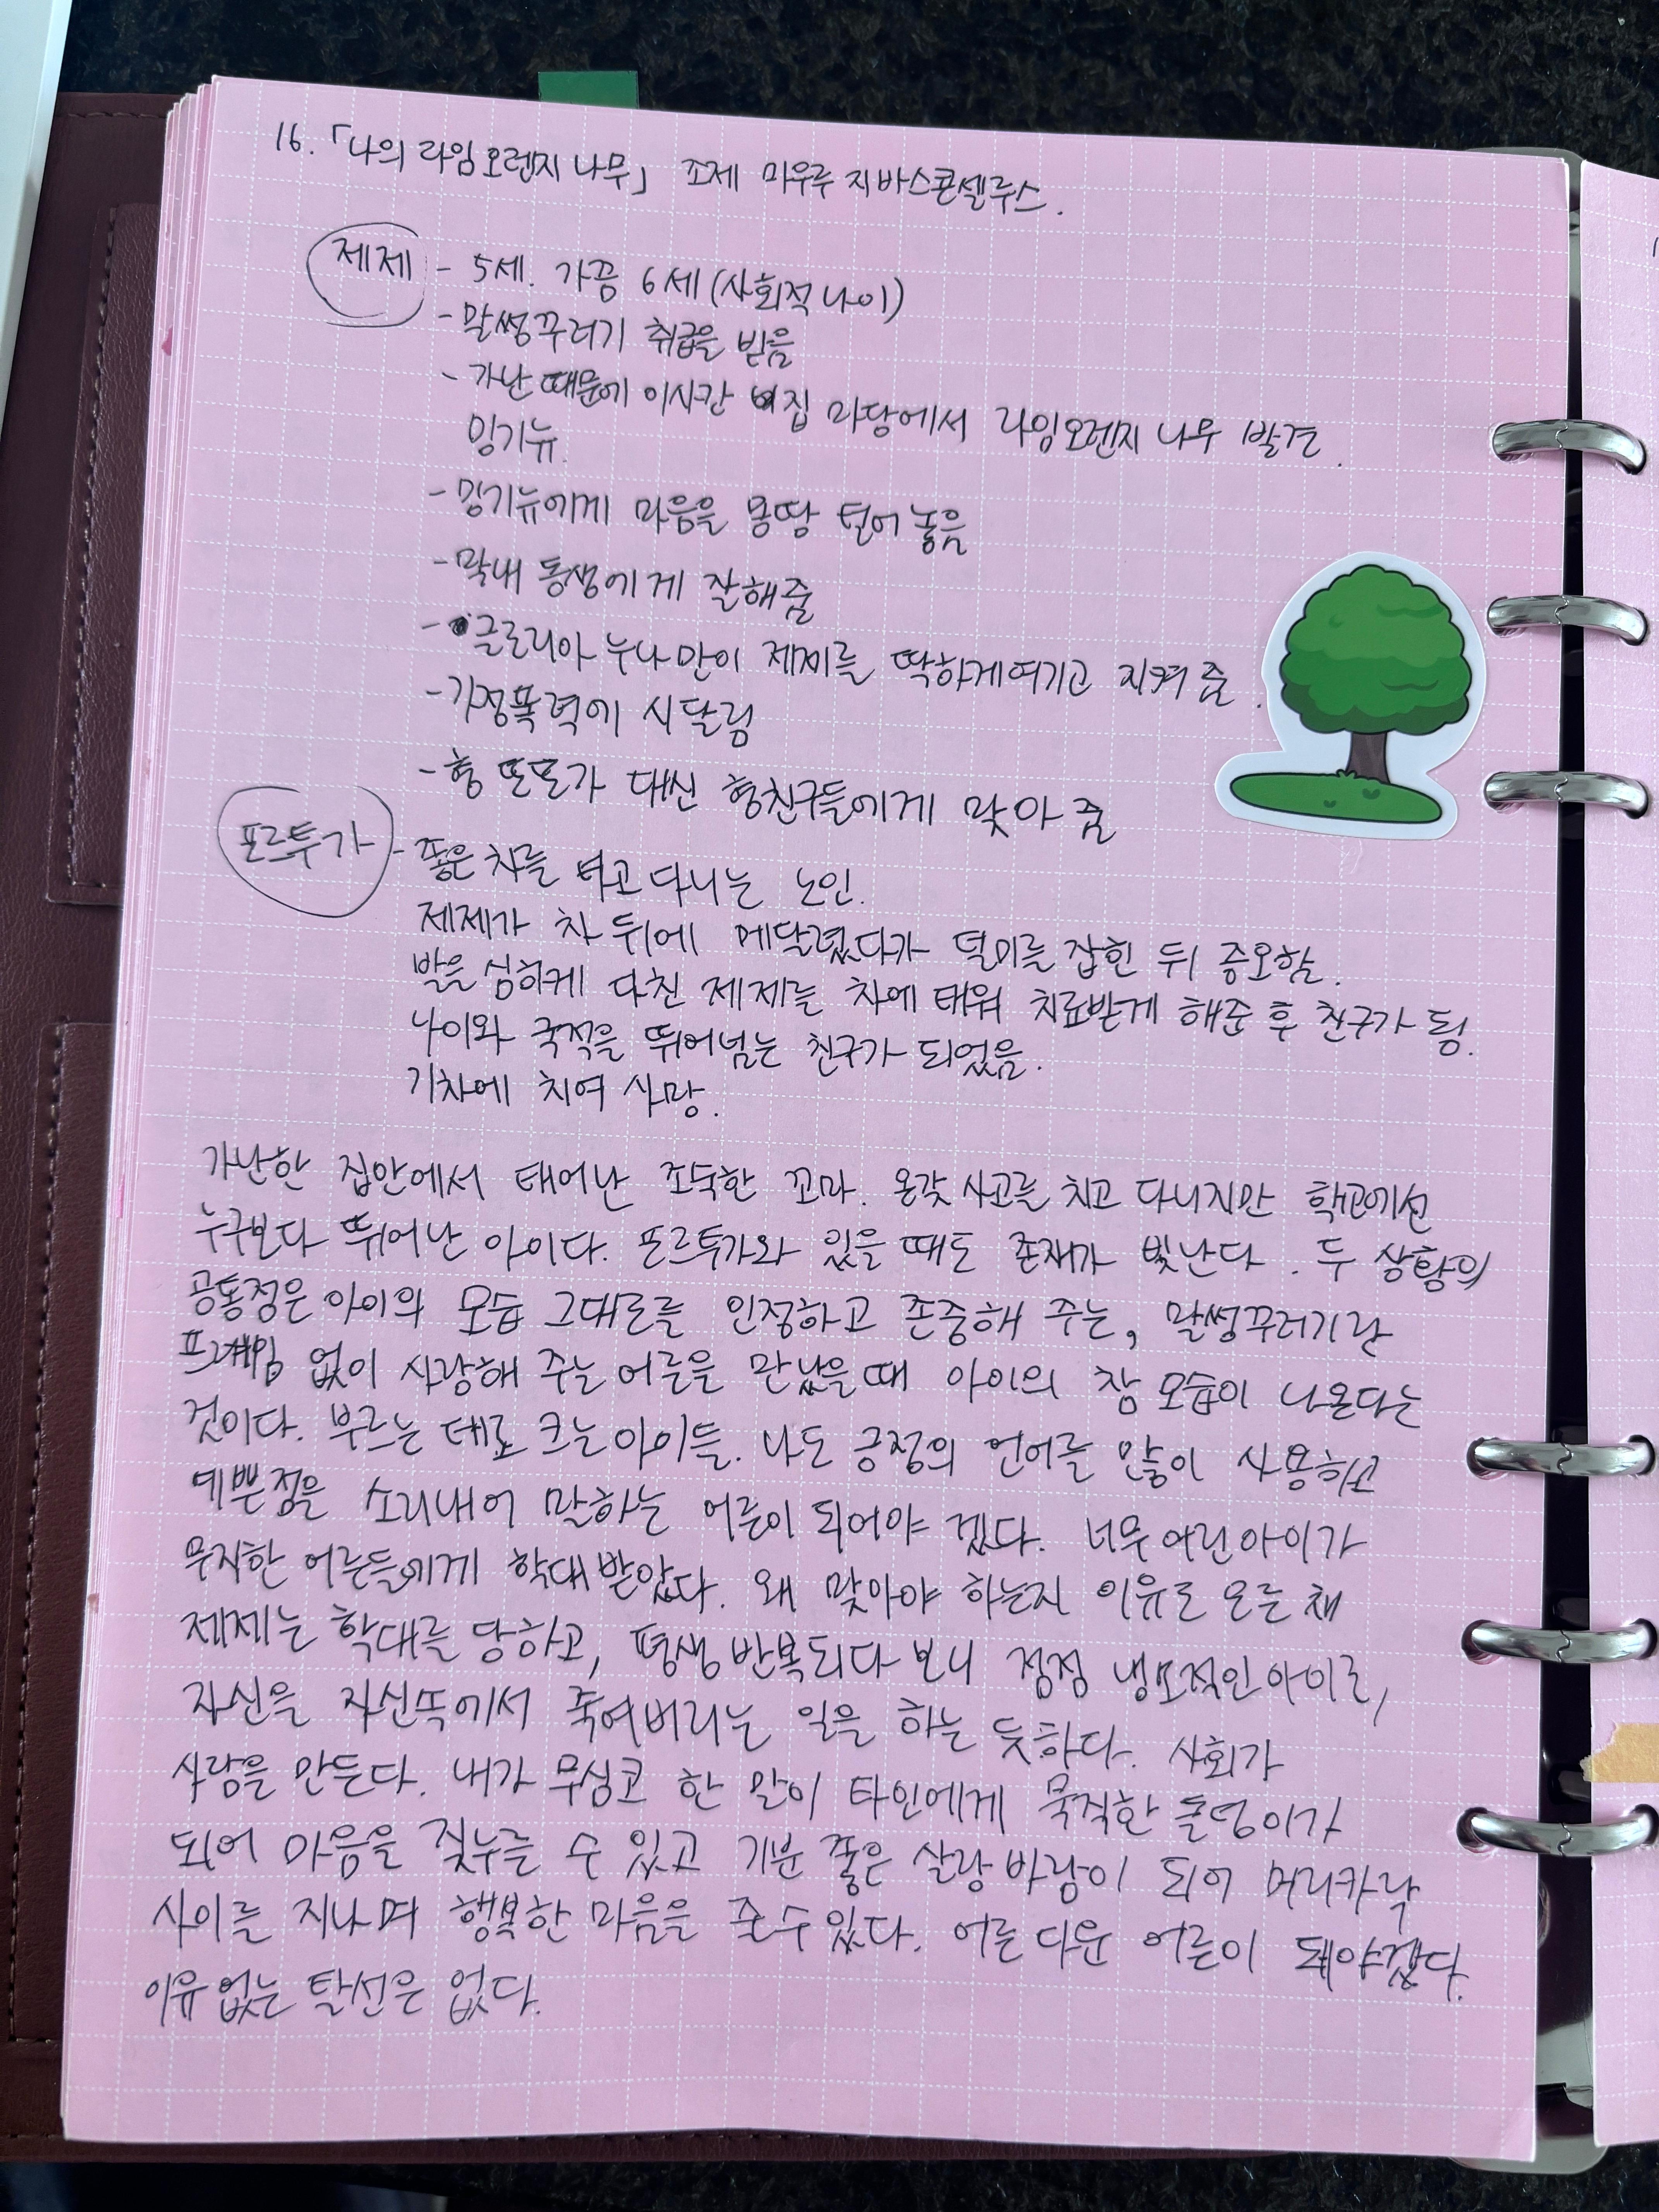 16. 「나의 라임 오렌지 나무」 조제 마우루 지 바스콘셀루스.
제제 - 5세. 가끔 6세 (사회적 나이)
- 말썽꾸러기 취급을 받음
- 가난 때문에 이사간 집 마당에서 라임오렌지 나무 발견.
밍기뉴.
- 밍기뉴에게 마음을 몽땅 털어 놓음
- 막내 동생에게 잘해줌
- 글로리아 누나만이 제제를 딱하게 여기고 지켜 줌.
- 가정폭력에 시달림
- 형 또또가 대신 형친구들에게 맞아 줌
포르투가 - 좋은 차를 타고 다니는 노인.
제제가 차 뒤에 메달렸다가 덜미를 잡힌 뒤 증오함.
발을 심하게 다친 제제를 차에 태워 치료받게 해준 후 친구가 됨.
나이와 국적을 뛰어넘는 친구가 되었음.
기차에 치여 사망.
가난한 집안에서 태어난 조숙한 꼬마. 온갖 사고를 치고 다니지만 학교에선
누구보다 뛰어난 아이다. 포르투가와 있을 때도 존재가 빛난다. 두 상황의
공통점은 아이의 모습 그대로를 인정하고 존중해 주는, 말썽꾸러기란
프레임 없이 사랑해 주는 어른을 만났을 때 아이의 참 모습이 나온다는
것이다. 부르는 데로 크는 아이들. 나도 긍정의 언어를 많이 사용하고
예쁜점을 소리내어 말하는 어른이 되어야 겠다. 너무 어린 아이가
무지한 어른들에게 학대 받았다. 왜 맞아야 하는지 이유로 모른 채
제제는 학대를 당하고, 평생 반복되다 보니 점점 냉소적인 아이로,
자신을 자신쪽에서 죽여버리는 일을 하는 듯하다. 사회가
사람을 만든다. 내가 무심코 한 말이 타인에게 묵직한 돌덩이가
되어 마음을 짖누를 수 있고 기분 좋은 살랑바람이 되어 머리카락
사이를 지나며 행복한 마음을 줄 수 있다. 어른 다운 어른이 돼야겠다.
이유 없는 탈선은 없다.